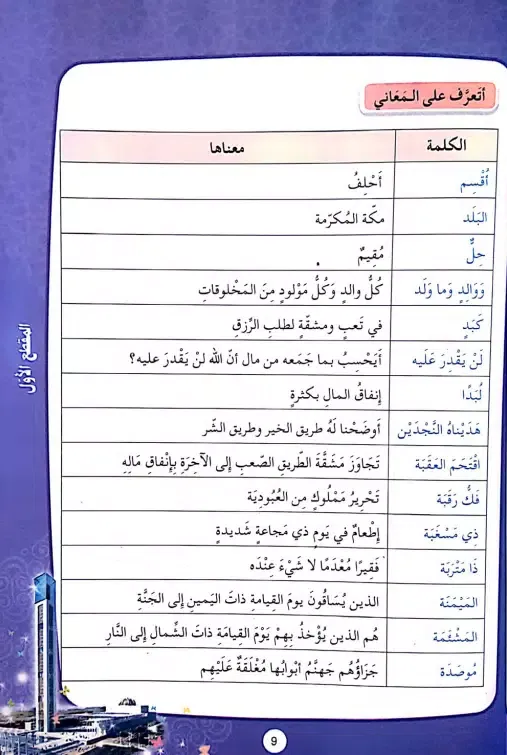 أتعرَّف على الـمَعَاني
الكلمة معناها
أُقْسِم أَحْلِفُ
البَلَد مكّة المُكرّمة
حِلٌّ مُقِيمٌ
وَوَالِدٍ وَما وَلَد كُلُّ والدٍ وَكُلُّ مَوْلودٍ مِنَ المَخْلوقاتِ
كَبَدٍ في تَعبٍ ومشقّة لطلبِ الرِّزقِ
لَنْ يَقْدِرَ عَلَيه أَيَحْسِبُ بما جَمَعه من مال أنَ الله لنْ يَقْدرَ عليه؟
لُبَدًا إنفاقُ المالِ بكثرةٍ
هَدَيْناهُ النَّجْدَيْن أوضَحْنا لَهُ طريق الخير وطريق الشّر
اقْتَحَمَ العَقَبَة تَجَاوَزَ مَشَقَّةَ الطّريقِ الصّعبِ إلى الآخِرَةِ بِإنْفاقِ مَالِهِ
فَكُّ رَقَبَة تَحْرِيرُ مَمْلُوكٍ مِن العُبُودِيَة
ذِي مَسْغَبَة إطْعامٌ في يَومٍ ذي مَجاعةٍ شَديدةٍ
ذَا مَتْرَبَة فَقِيرًا مُعْدَمًا لا شَيْءَ عِنْدَه
المَيْمَنَة الذين يُسَاقُونَ يومَ القِيامةِ ذاتَ اليَمينِ إلى الجَنَّةِ
المَشْئَمَة هُم الذين يُؤْخذُ بِهِمْ يَوْمَ القِيَامَةِ ذاتَ الشِّمالِ إلى النّارِ
مُوصَدَة جَزَاؤُهُم جَهنَّمُ أبْوابُها مُغْلَقَةٌ عَلَيْهِم
المقطع الأوّل
9